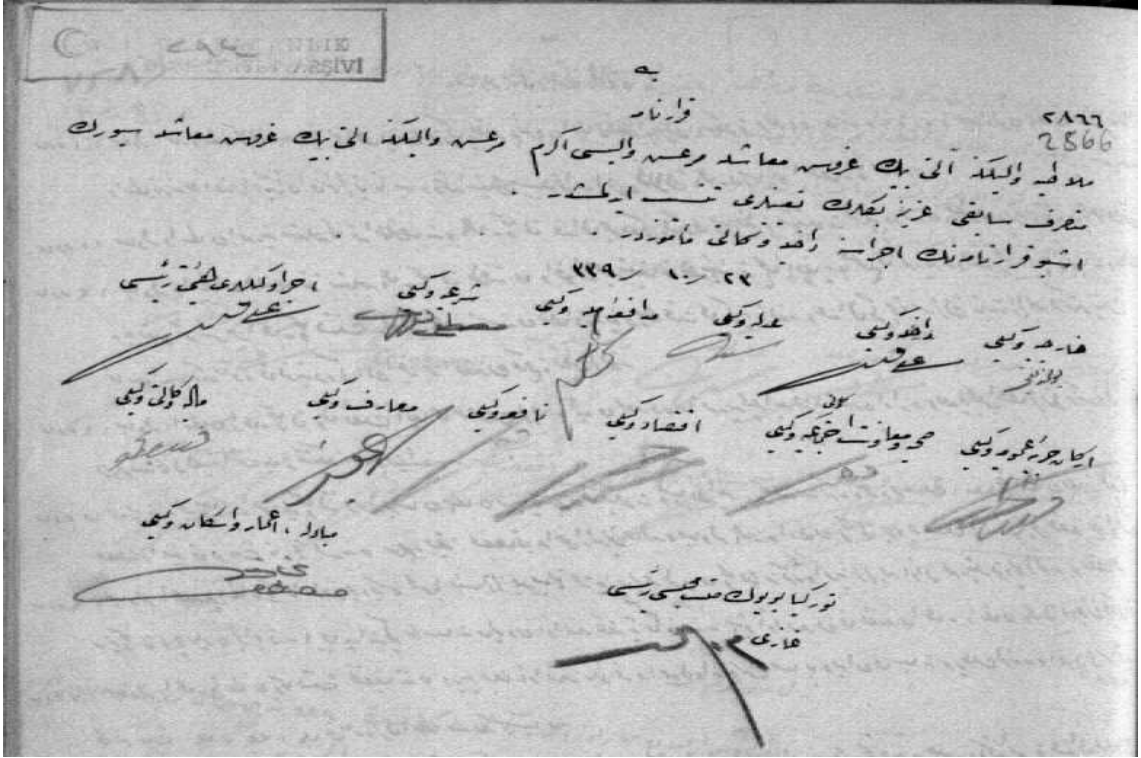 قرارنامه
٢٨٦٦
2866
ملاطيه واليلكنه آلتى بيك غروش معاشله مرعش واليسى اكرم مرعش واليلكنه التى بيك غروش معاشله سيورك
متصرف سابقى عزيز بكلرك تعيينلرى تنسيب ايدلمشدر .
اشبو قرارنامه نك اجراسنه داخليه وكالتى مأموردر .
٢٣ ١٠ ٣٣٩
اجرا وكيللرى هيئتى رئيسى
شرعيه وكيلى
مدافعه مليه وكيلى
عدليه وكيلى
داخليه وكيلى
خارجيه وكيلى
على فتحى
مصطفى
على فتحى
ماليه وكالتى وكيلى
معارف وكيلى
نافعه وكيلى
اقتصاد وكيلى
صحيه ومعاونت اجتماعيه وكيلى
اركان حربيه عموميه وكيلى
مبادله ، اعمار واسكان وكيلى
مصطفى نجاتى
توركيا بويوك ملت مجلسى رئيسى
غازى م. كمال